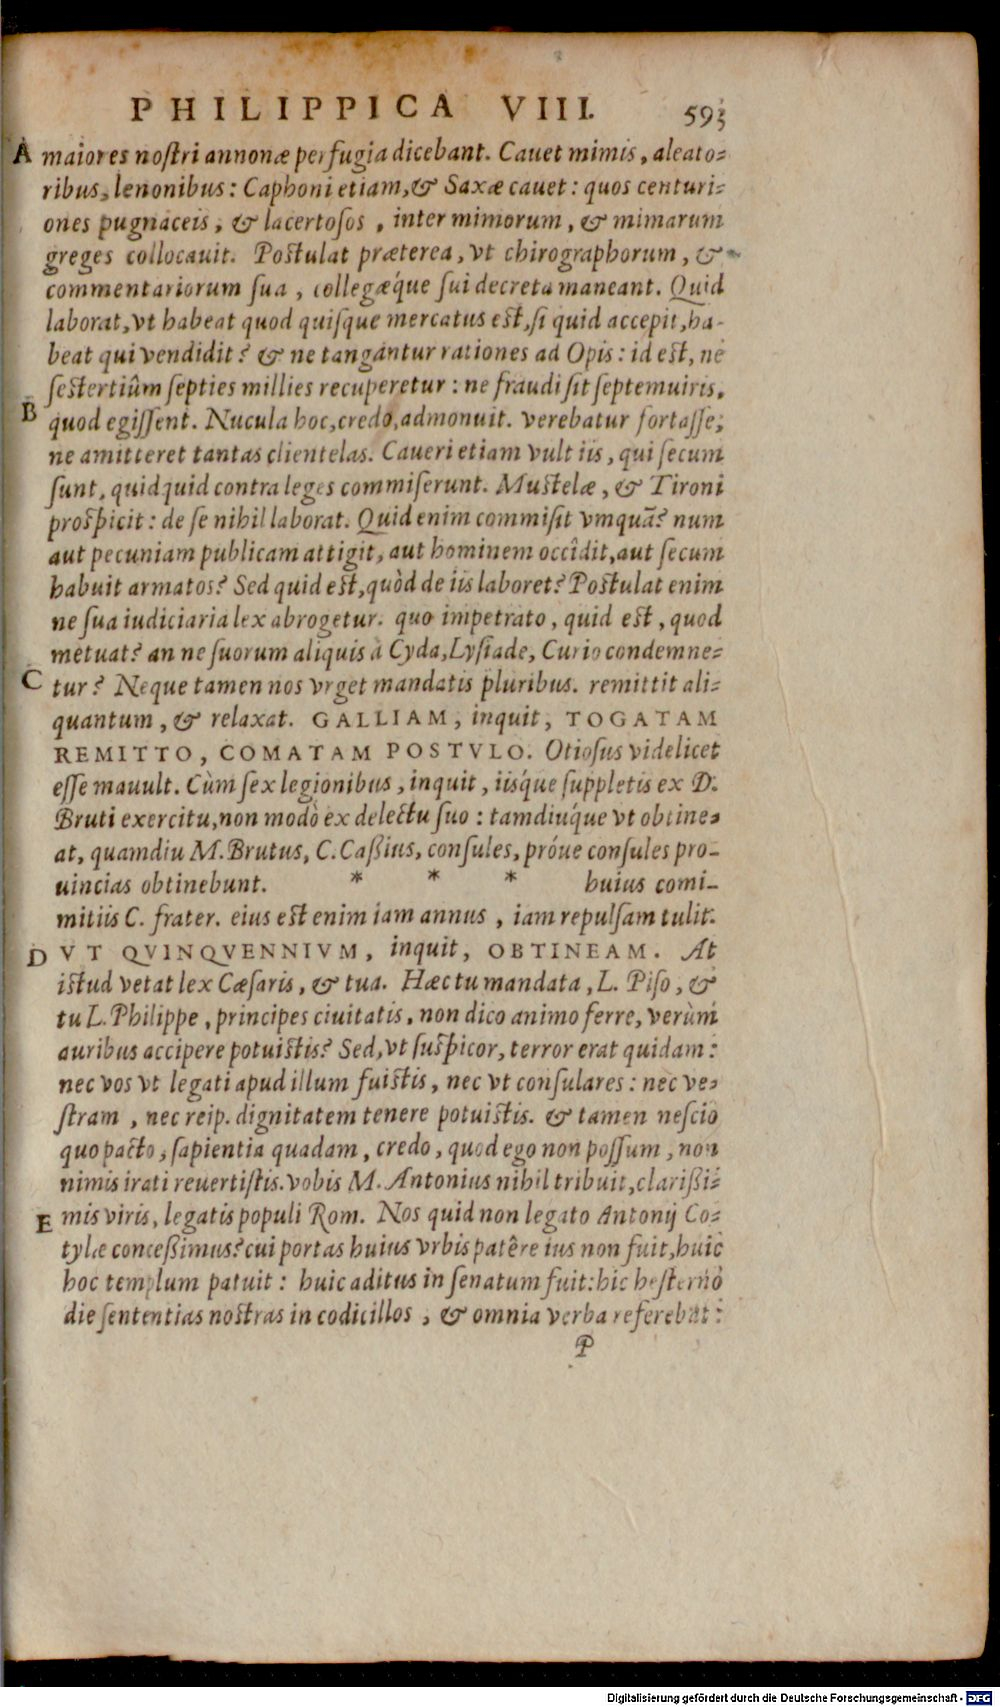 PHILIPPICA VIII. 593
A maiores nostri annonæ perfugia dicebant. Cauet mimis, aleato-
ribus, lenonibus: Caphoni etiam, & Saxæ cauet: quos centuri-
ones pugnaceis, & lacertosos, inter mimorum, & mimarum
greges collocauit. Postulat præterea, vt chirographorum, &
commentariorum sua, collegæq́ue sui decreta maneant. Quid
laborat, vt habeat quod quisque mercatus est, si quid accepit, ha-
beat qui vendidit? & ne tangantur rationes ad Opis: id est, ne
sestertiûm septies millies recuperetur: ne fraudi sit septemuiris,
B quod egissent. Nucula hoc, credo, admonuit. verebatur fortasse,
ne amitteret tantas clientelas. Caueri etiam vult iis, qui secum
sunt, quidquid contra leges commiserunt. Mustelæ, & Tironi
prospicit: de se nihil laborat. Quid enim commisit vmquã? num
aut pecuniam publicam attigit, aut hominem occîdit, aut secum
habuit armatos? Sed quid est, quòd de iis laboret? Postulat enim
ne sua iudiciaria lex abrogetur. quo impetrato, quid est, quod
metuat? an ne suorum aliquis à Cyda, Lysiade, Curio condemne-
C tur? Neque tamen nos vrget mandatis pluribus. remittit ali-
quantum, & relaxat. GALLIAM, inquit, TOGATAM
REMITTO, COMATAM POSTVLO. Otiosus videlicet
esse mauult. Cùm sex legionibus, inquit, iisq́ue suppletis ex D.
Bruti exercitu, non modò ex delectu suo: tamdiuq́ue vt obtine-
at, quamdiu M. Brutus, C. Caßius, consules, próue consules pro-
uincias obtinebunt. * * * huius comi-
mitiis C. frater. eius est enim iam annus, iam repulsam tulit.
D VT QVINQVENNIVM, inquit, OBTINEAM. At
istud vetat lex Cæsaris, & tua. Hæc tu mandata, L. Piso, &
tu L. Philippe, principes ciuitatis, non dico animo ferre, verùm
auribus accipere potuistis? Sed, vt suspicor, terror erat quidam:
nec vos vt legati apud illum fuistis, nec vt consulares: nec ve-
stram, nec reip. dignitatem tenere potuistis. & tamen nescio
quo pacto, sapientia quadam, credo, quod ego non possum, non
nimis irati reuertistis. vobis M. Antonius nihil tribuit, clarißi-
E mis viris, legatis populi Rom. Nos quid non legato Antonij Co-
tylæ conceßimus? cui portas huius vrbis patêre ius non fuit, huic
hoc templum patuit: huic aditus in senatum fuit: hic hesterno
die sententias nostras in codicillos, & omnia verba referebat:
P
Digitalisierung gefördert durch die Deutsche Forschungsgemeinschaft - DFG